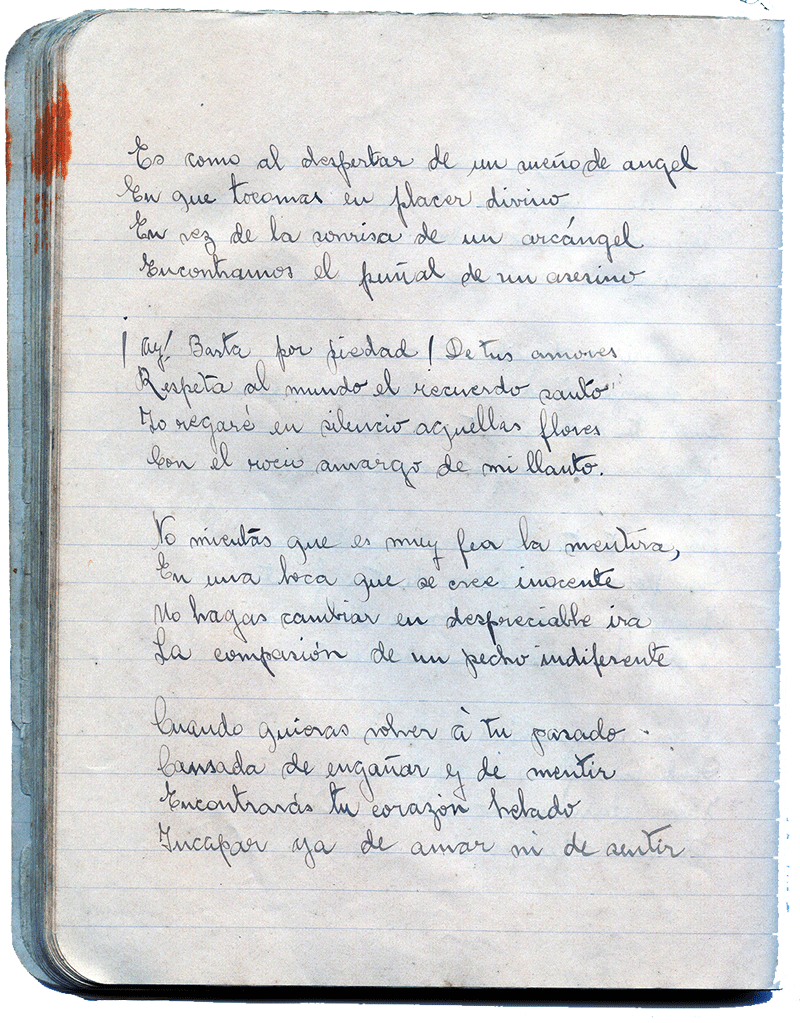 Es como al despertar de un sueño de angel
En que tocamas en placer divino
En vez de la sonrisa de un arcángel
Encontramos el puñal de un asesino
¡Ay! Basta por piedad! De tus amores
Respeta al mundo el recuerdo santo
Yo regaré en silencio aquellas flores
Con el rocio amargo de mi llanto.
No mientas que es muy fea la mentira,
En una boca que se cree inocente
No hagas cambiar en despreciable ira
La compasión de un pecho indiferente
Cuando quieras volver á tu pasado
Cansada de engañar y de mentir
Encontrarás tu corazón helado
Incapar ya de amar ni de sentir